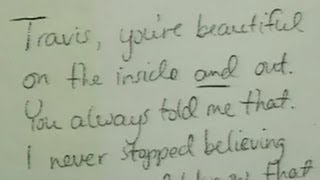 Travis, you're beautiful
on the inside and out.
You always told me that.
I never stopped believing
that